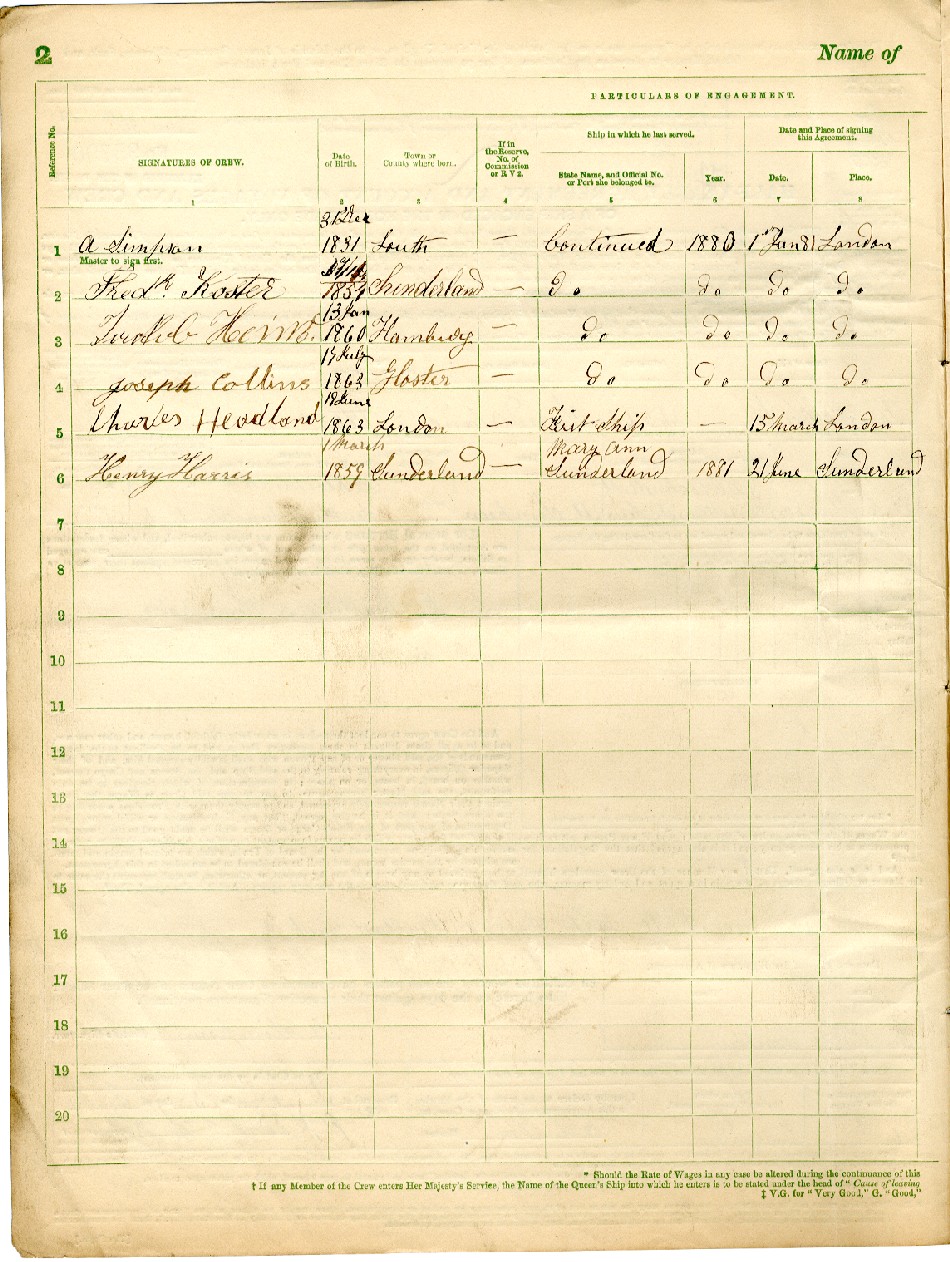 2 Name of
PARTICULARS OF ENGAGEMENT.
Reference No.
SIGNATURES OF CREW.
Date of Birth.
Town or County where born.
If in the Reserve, No. of Commission or R V 2.
Ship in which he last served.
State Name, and Official No. or Port she belonged to.
Year.
Date and Place of signing this Agreement.
Date.
Place.
1 2 3 4 5 6 7 8
31 Dec
1 A Simpson 1831 South — Continued 1880 1st Jan 81 London
Master to sign first.
2 Fredk. Koster Sunderland — Do Do Do Do
13 Jan
3 1860 Hamburg — Do Do Do Do
17 July
4 Joseph Collins 1863 Gloster — Do Do Do Do
19 June
5 Charles Headland 1863 London — First Ship — 15 March London
1 March Mary Ann
6 Henry Harris 1859 Sunderland — Sunderland 1881 21 June Sunderland
7
8
9
10
11
12
13
14
15
16
17
18
19
20
* Should the Rate of Wages in any case be altered during the continuance of this
† If any Member of the Crew enters Her Majesty's Service, the Name of the Queen's Ship into which he enters is to be stated under the head of "Cause of leaving
‡ V.G. for "Very Good," G. "Good,"